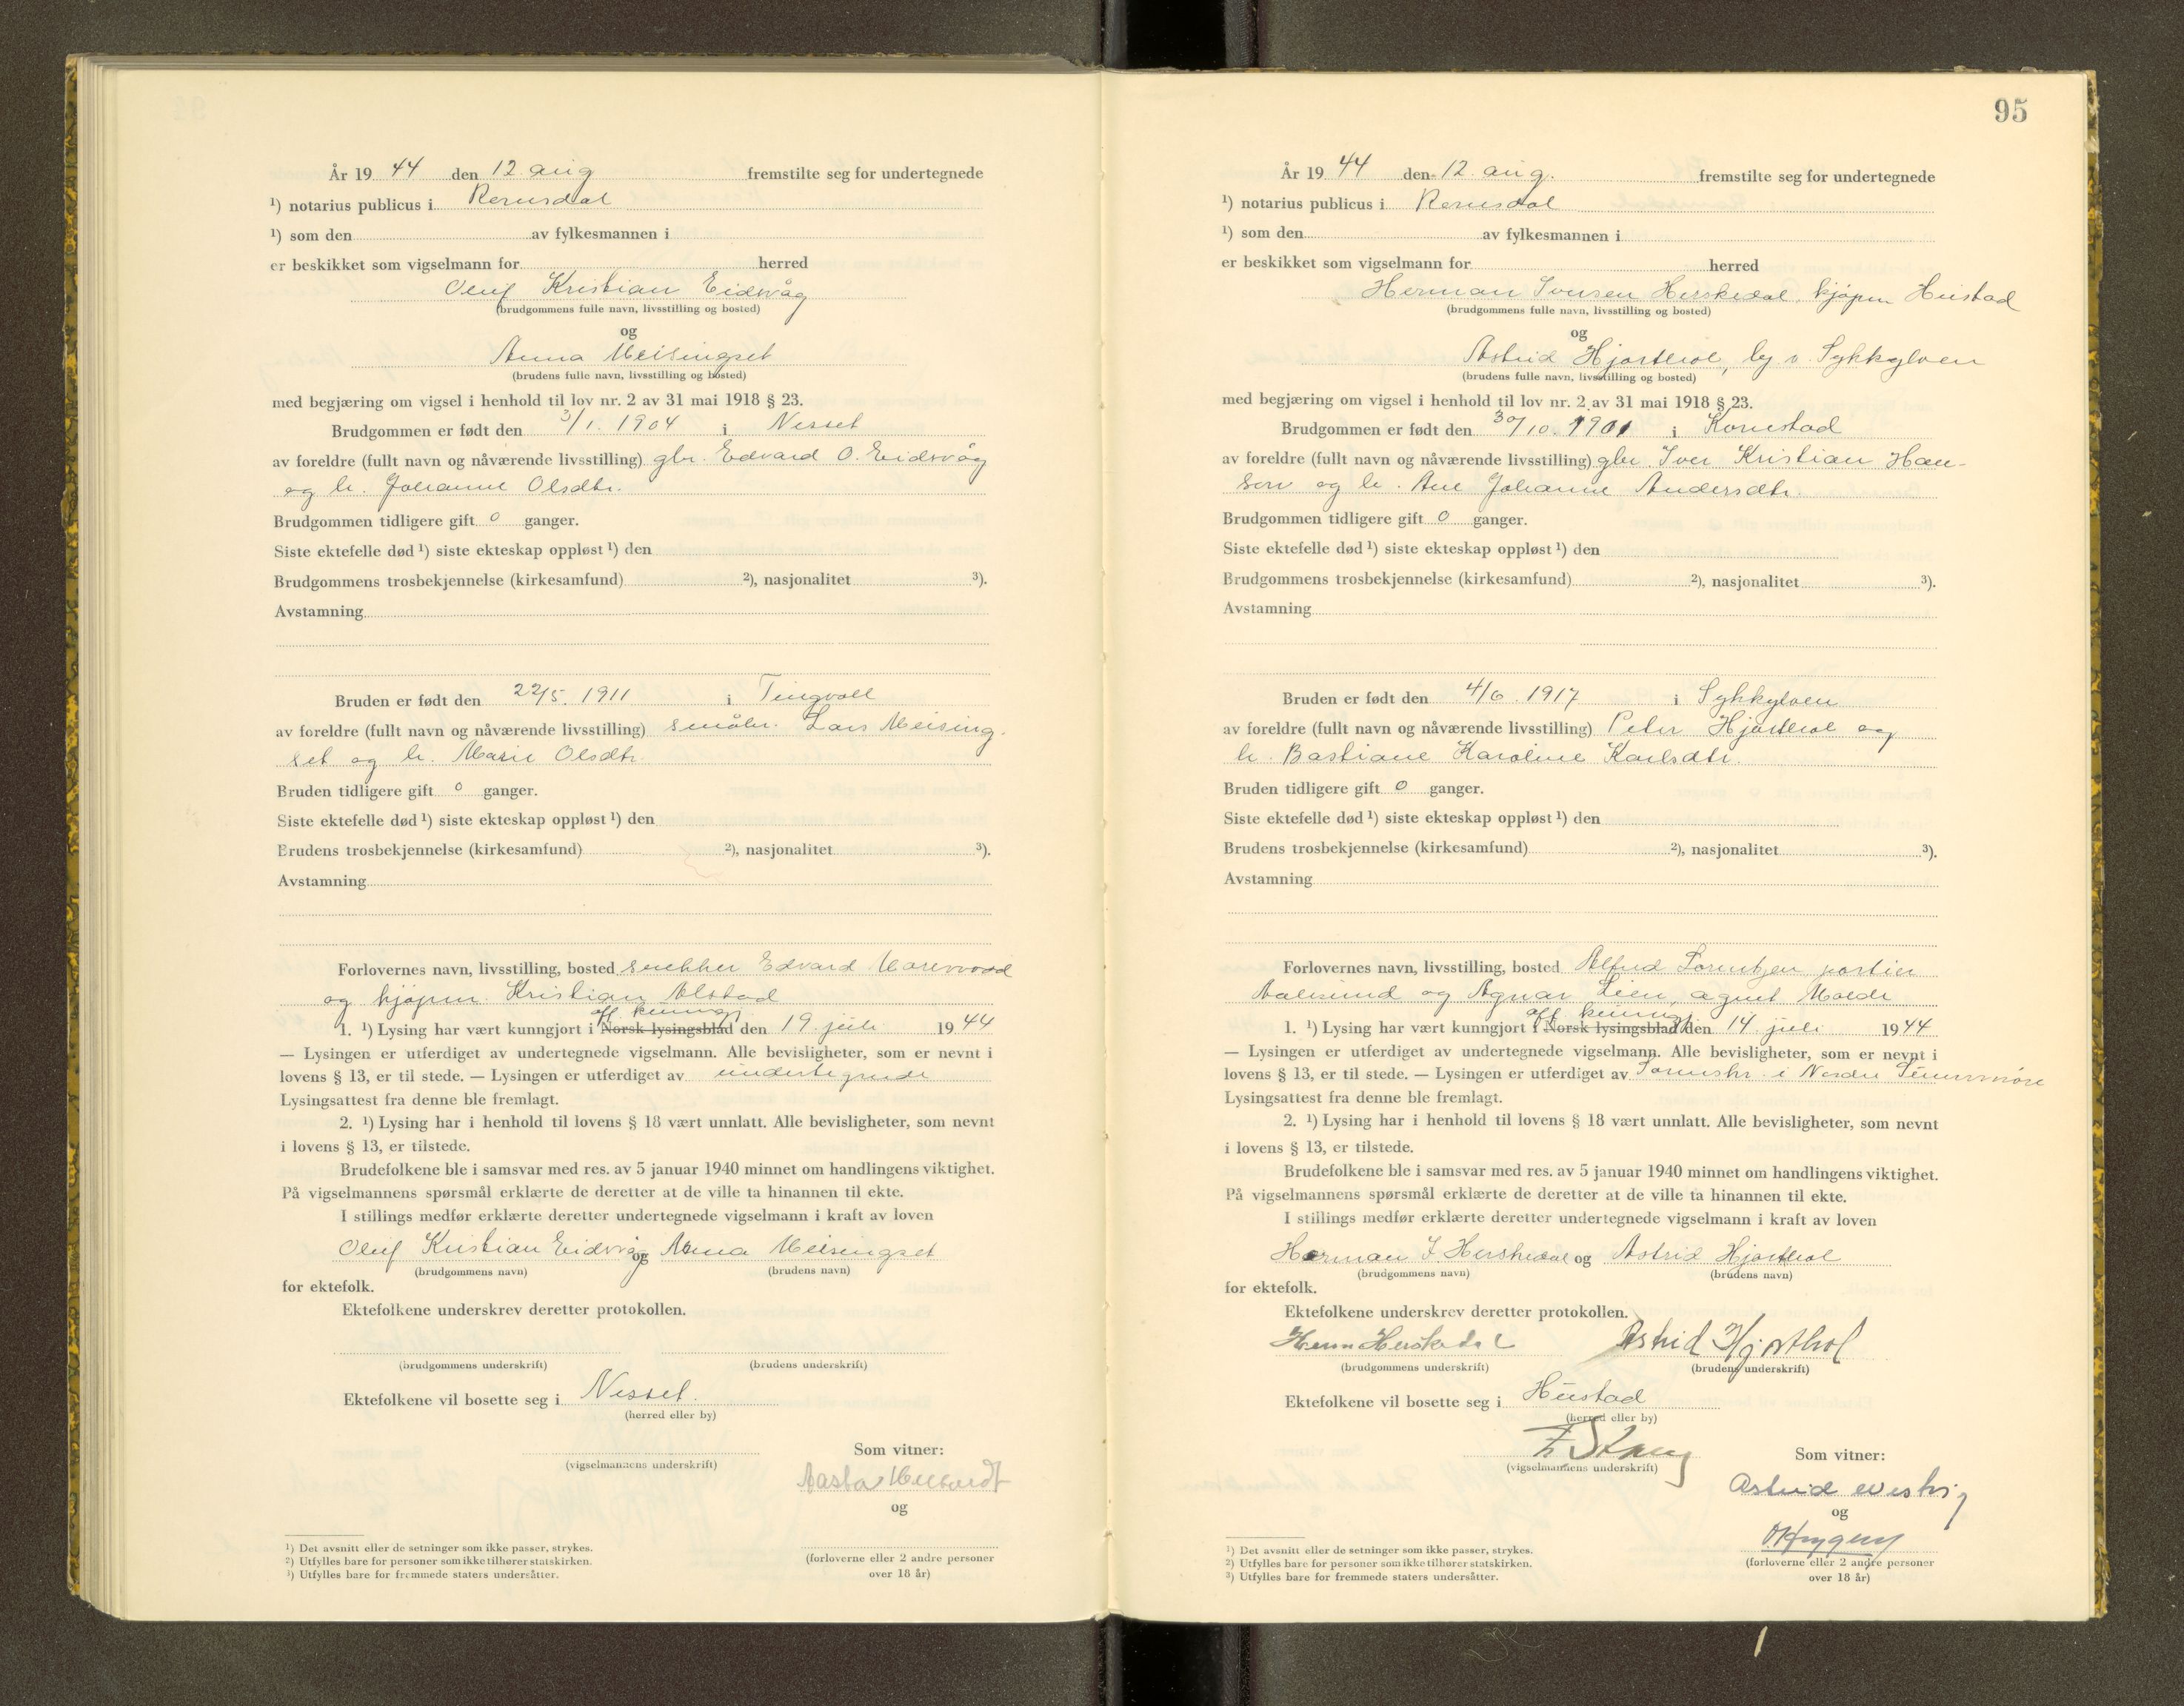 År 19 44 den 12. aug fremstilte seg for undertegnede
¹) notarius publicus i Romsdal
¹) som den av fylkesmannen i
er beskikket som vigselmann for herred
Oluf Kristian Eidsvåg
(brudgommens fulle navn, livsstilling og bosted)
og
Anna Meisingset
(brudens fulle navn, livsstilling og bosted)
med begjæring om vigsel i henhold til lov nr. 2 av 31 mai 1918 § 23.
Brudgommen er født den 3/1. 1904 i Nesset
av foreldre (fullt navn og nåværende livsstilling) gbr. Edvard O. Eidsvåg
og h. Johanne Olsdtr.
Brudgommen tidligere gift 0 ganger.
Siste ektefelle død ¹) siste ekteskap oppløst ¹) den
Brudgommens trosbekjennelse (kirkesamfund) ²), nasjonalitet ³).
Avstamning
Bruden er født den 22/5. 1911 i Tingvoll
av foreldre (fullt navn og nåværende livsstilling) småbr. Lars Meising-
set og h. Marie Olsdtr.
Bruden tidligere gift 0 ganger.
Siste ektefelle død ¹) siste ekteskap oppløst ¹) den
Brudens trosbekjennelse (kirkesamfund) ²), nasjonalitet ³).
Avstamning
Forlovernes navn, livsstilling, bosted snekker Edvard
og kjøpm. Kristian Alstad
off. kunngj.
1. ¹) Lysing har vært kunngjort i Norsk lysingsblad den 19. juli 19 44
— Lysingen er utferdiget av undertegnede vigselmann. Alle bevisligheter, som er nevnt i
lovens § 13, er til stede. — Lysingen er utferdiget av undertegnede
Lysingsattest fra denne ble fremlagt.
2. ¹) Lysing har i henhold til lovens § 18 vært unnlatt. Alle bevisligheter, som nevnt
i lovens § 13, er tilstede.
Brudefolkene ble i samsvar med res. av 5 januar 1940 minnet om handlingens viktighet.
På vigselmannens spørsmål erklærte de deretter at de ville ta hinannen til ekte.
I stillings medfør erklærte deretter undertegnede vigselmann i kraft av loven
Oluf Kristian Eidsvåg og Anna Meisingset
(brudgommens navn) (brudens navn)
for ektefolk.
Ektefolkene underskrev deretter protokollen.
(brudgommens underskrift) (brudens underskrift)
Ektefolkene vil bosette seg i Nesset.
(herred eller by)
Som vitner:
(vigselmannens underskrift)
Aasta
og
(forloverne eller 2 andre personer
over 18 år)
¹) Det avsnitt eller de setninger som ikke passer, strykes.
²) Utfylles bare for personer som ikke tilhører statskirken.
³) Utfylles bare for fremmede staters undersåtter.
95
År 19 44 den 12. aug. fremstilte seg for undertegnede
¹) notarius publicus i Romsdal
¹) som den av fylkesmannen i
er beskikket som vigselmann for herred
Herman Iversen Herskedal, kjøpm Hustad
(brudgommens fulle navn, livsstilling og bosted)
og
Astrid Hjorthol, Sykkylven
(brudens fulle navn, livsstilling og bosted)
med begjæring om vigsel i henhold til lov nr. 2 av 31 mai 1918 § 23.
Brudgommen er født den 30/10. 1901 i Kornstad
av foreldre (fullt navn og nåværende livsstilling) gbr. Iver Kristian Han-
sen og h. Ane Johanne Andersdtr.
Brudgommen tidligere gift 0 ganger.
Siste ektefelle død ¹) siste ekteskap oppløst ¹) den
Brudgommens trosbekjennelse (kirkesamfund) ²), nasjonalitet ³).
Avstamning
Bruden er født den 4/6. 1917 i Sykkylven
av foreldre (fullt navn og nåværende livsstilling) Peter Hjorthol og
h. Bastiane Karoline Karlsdtr.
Bruden tidligere gift 0 ganger.
Siste ektefelle død ¹) siste ekteskap oppløst ¹) den
Brudens trosbekjennelse (kirkesamfund) ²), nasjonalitet ³).
Avstamning
Forlovernes navn, livsstilling, bosted Alfred Lorentzen portier
Aalesund og Agnar Lien, agent Molde
off. kunngj.
1. ¹) Lysing har vært kunngjort i Norsk lysingsblad den 14. juli 19 44
— Lysingen er utferdiget av undertegnede vigselmann. Alle bevisligheter, som er nevnt i
lovens § 13, er til stede. — Lysingen er utferdiget av Sorenskr. i Nordre Sunnmøre
Lysingsattest fra denne ble fremlagt.
2. ¹) Lysing har i henhold til lovens § 18 vært unnlatt. Alle bevisligheter, som nevnt
i lovens § 13, er tilstede.
Brudefolkene ble i samsvar med res. av 5 januar 1940 minnet om handlingens viktighet.
På vigselmannens spørsmål erklærte de deretter at de ville ta hinannen til ekte.
I stillings medfør erklærte deretter undertegnede vigselmann i kraft av loven
Herman I. Herskedal og Astrid Hjorthol
(brudgommens navn) (brudens navn)
for ektefolk.
Ektefolkene underskrev deretter protokollen.
Herm Herskedal Astrid Hjorthol
(brudgommens underskrift) (brudens underskrift)
Ektefolkene vil bosette seg i Hustad
(herred eller by)
Som vitner:
(vigselmannens underskrift)
Astrid
og
(forloverne eller 2 andre personer
over 18 år)
¹) Det avsnitt eller de setninger som ikke passer, strykes.
²) Utfylles bare for personer som ikke tilhører statskirken.
³) Utfylles bare for fremmede staters undersåtter.